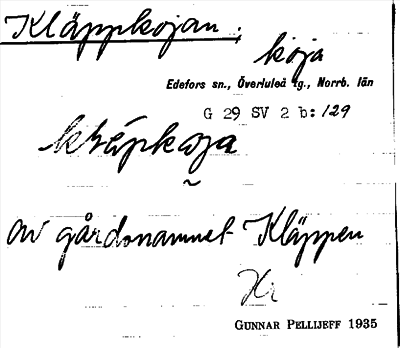 Kläppkojan.
koja
Edefors sn., Överluleå tg., Norrb. län
G 29 SV 2 b: 129
av gårdsnamnet Kläppen
GUNNAR PELLIJEFF 1935